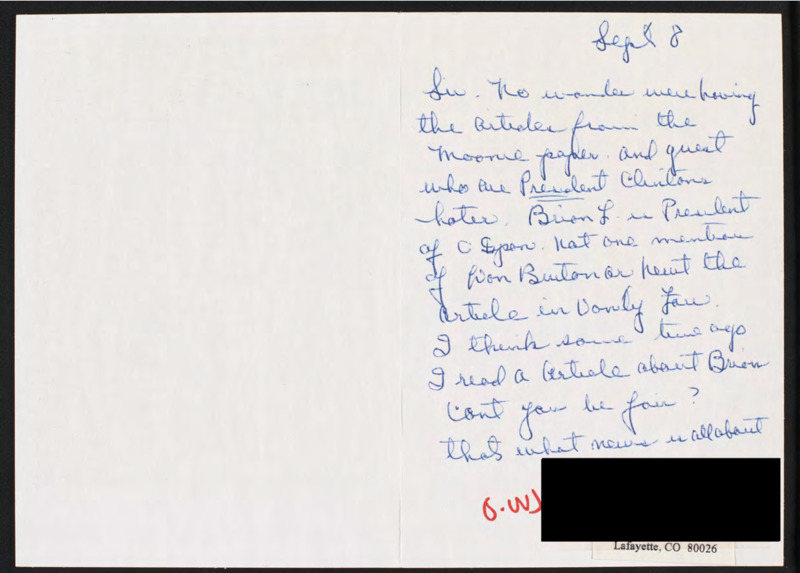 Sept 8
Sir. No wonder were having
the articles from the
Moonie paper. and guest
who are President Clintons
hater. Brian L. is President
of C Span. Not one mention
of Dan Burton or Newt the
article in Vanity Fair.
I think some time ago
I read a Article about Brian
Cant you be fair?
thats what news is all about
Lafayette, CO 80026